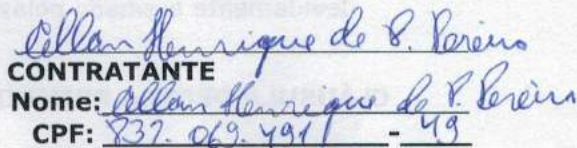 Allan Henrique de P. Pereira
CONTRATANTE
Nome: Allan Henrique de P. Pereira
CPF: 837.069.791 - 49